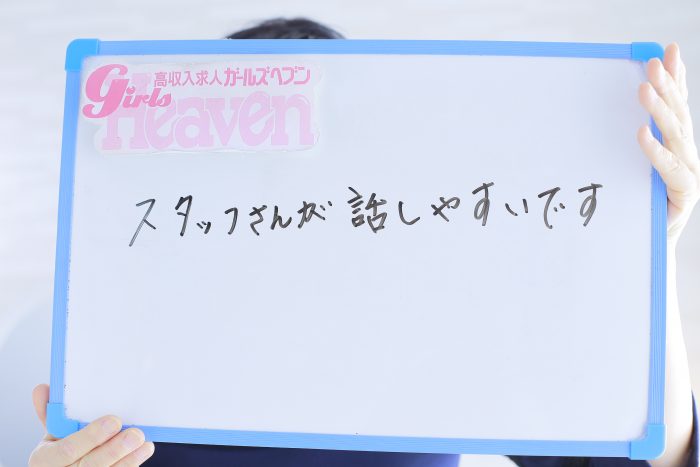 高収入求人ガールズヘブン
Girls
Heaven
スタッフさんが話しやすいです